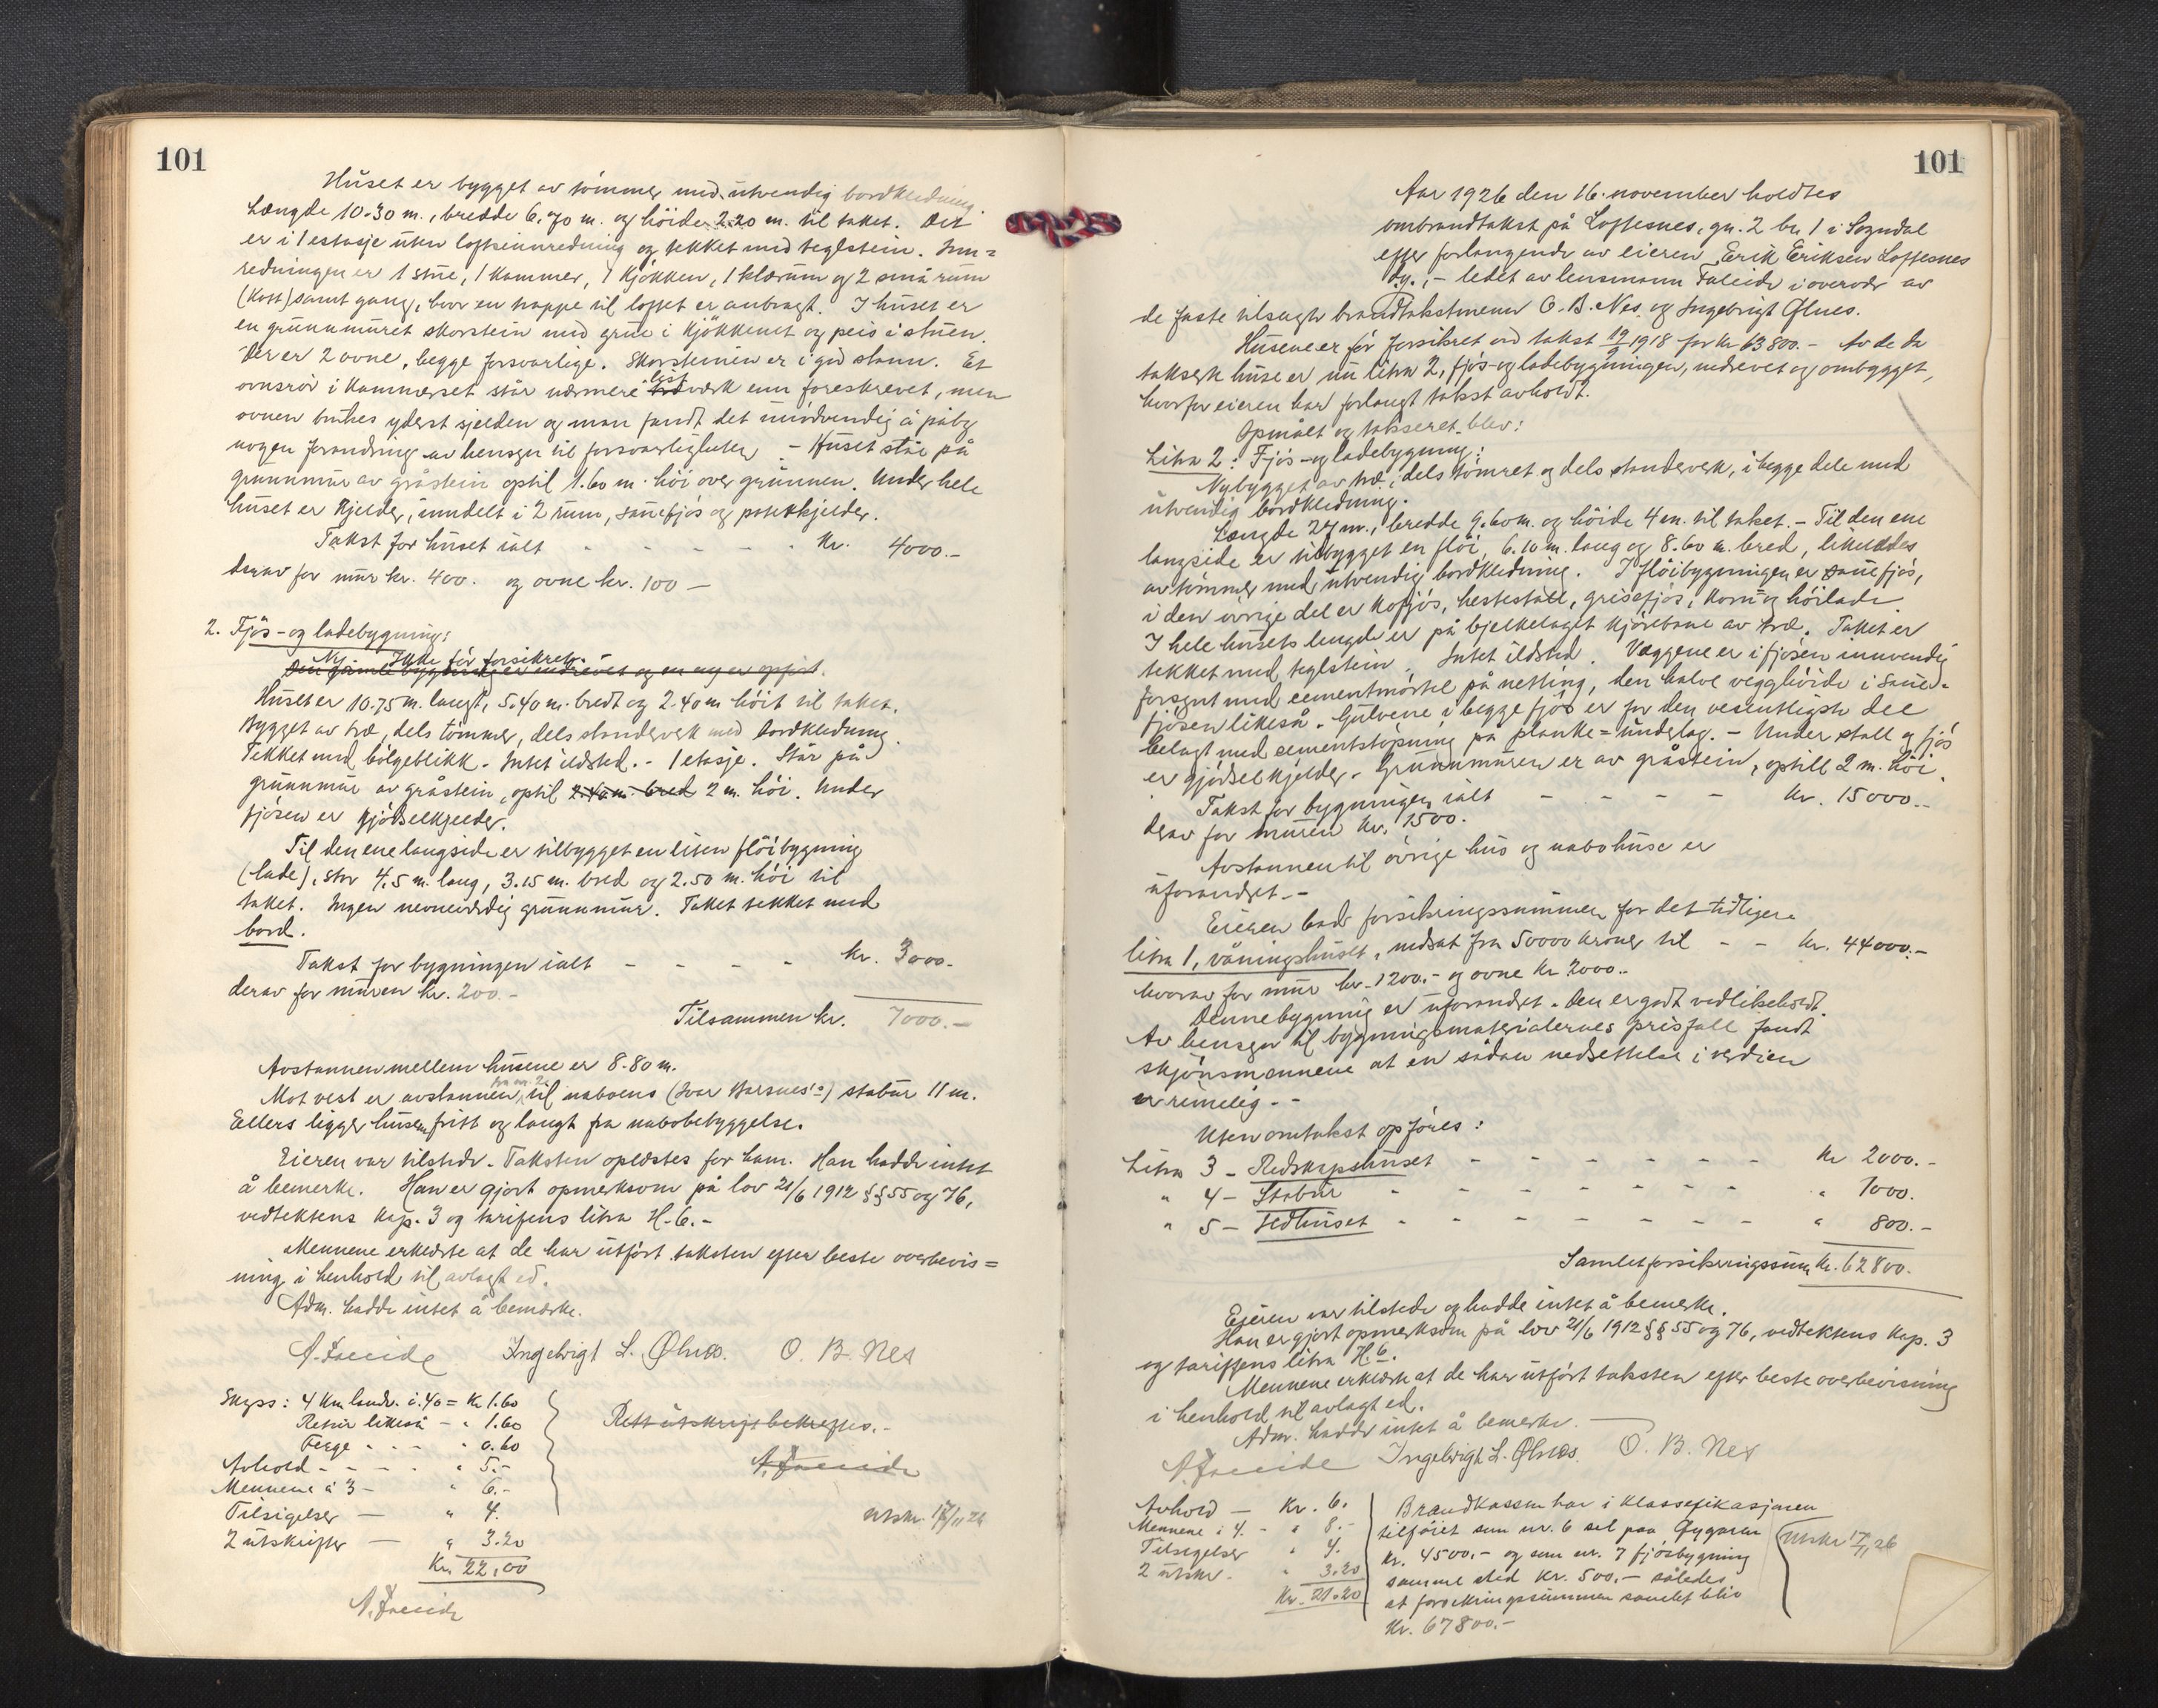 101
Huset er bygget av tömmer med utvendig bordkledning.
Længde 10.30 m., bredde 6.70 m. og höide 2.20 m. til taket. Det
er i 1 estasje uten loftsinnredning og tekket med teglstein. Inn=
redningen er 1 stue, 1 kammer, 1 kjökken, 1 klærum og 2 små rum
(kott) samt gang, hvor en trappe til loftet er anbragt. I huset er
en grunnmuret skorstein med grue i kjökkenet og peis i stuen.
Der er 2 ovne, begge forsvarlige. Skorsteinen er i god stann. Et
ovnsrör i kammerset står nærmere trævœrk enn foreskrevet, men
ovnen brukes yderst sjelden og man fandt det unödvendig å påby
nogen forandring av hensyn til forsvarligheten. - Huset står på
grunnmur av gråstein optil 1.60 m. höi over grunnen. Under hele
huset er kjelder, inndelt i 2 rum, sauefjös og potetkjelder.
Takst for huset ialt - - - - - Kr. 4000.-
derav for mur kr. 400. og ovne kr. 100 -
2. Fjös- og ladebygning:
Ny. Ikke för forsikret.
Den gamle bygning er nedrevet og en ny er opfört.
Huset er 10.75 m. langt, 5.40 m. bredt og 2.40 m höit til taket.
Bygget av træ, dels tömmer, dels standerverk med bordkledning.
Tekket med bölgeblikk. Intet ildsted. - 1 etasje. Står på
grunnmur av gråstein, optil 2.40 m. bred 2 m. höi. Under
fjösen er gjödselkjelder.
Til den ene langside er tilbygget en liten flöibygning
(lade), stor 4.5 m. lang, 3.15 m. bred og 2.50 m. höi til
taket. Ingen nevneverdig grunnmur. Taket tekket med
bord.
Takst for bygningen ialt - - - - kr. 3000.-
derav for muren kr. 200.-
Tilsammen kr. 7000.-
Avstannen mellem husene er 8.80 m.
Mot vest er avstannen fra nr. 2 til naboens (Ivar Barsnes's) stabur 11 m.
Ellers ligger husene fritt og langt fra nabobebyggelse.
Eieren var tilstede. Taksten oplæstes for ham. Han hadde intet
å bemerke. Han er gjort opmerksom på lov 21/6 1912 §§ 55 og 76,
vedtektens kap. 3 og tarifens litra H-6.-
Mennene erklærte at de har utfört taksten efter beste overbevis=
ning i henhold til avlagt ed.
Adm. hadde intet å bemerke.
A. Faleide Ingebrigt L. Ølnes. O. B. Nes
Skyss: 4 km landv. à 40 = Kr 1.60
Retur likeså - " 1.60
Ferge - - - " 0.60
Avhold - - - - " 5.-
Mennene à 3 - " 6.-
Tilsigelser - " 4.
2 utskrifter - " 3.20
Kr. 22,00
A. Faleide
Rett utskrift bekreftes.-
A. Faleide
utskr. 17/11 26
101
Aar 1926 den 16. november holdtes
ombrandtakst på Loftesnes, gn. 2 br. 1 i Sogndal
efter forlangende av eieren Erik Eriksen Loftesnes
d.y., - ledet av lensmann Faleide i overvær av
de faste tilsagte brandtakstmenn O. B. Nes og Ingebrigt Ølnes.
Husene er för forsikret ved takst 19/9 1918 for kr. 63800.- Av de da
takserte huse er nu litra 2, fjös- og ladebygningen, nedrevet og ombygget,
hvorfor eieren har forlangt takst avholdt.
Opmålt og taksert blev:
Litra 2: Fjös- og ladebygning:
Nybygget av træ, dels tömret og dels standerverk, i begge dele med
utvendig bordkledning.
Længde 27 m., bredde 9.60 m. og höide 4 m. til taket. - Til den ene
langside er tilbygget en flöi, 6.10 m. lang og 8.60 m. bred, likeledes
av tömmer med utvendig bordkledning. I flöibygningen er sauefjös,
i den övrige del er kufjös, hestestall, grisefjös, korn og höilade.
I hele husets lengde er på bjelkelaget kjörebane av træ. Taket er
tekket med teglstein. Intet ildsted. Væggene er i fjösen innvendig
forsynt med cementmörtel på netting, den halve vegghöide i saue=
fjösen likeså. Gulvene i begge fjös er for den vesentligste del
belagt med sementstöpning på planke=underlag. - Under stall og fjös
er gjödselkjelder. Grunnmuren er av gråstein, optill 2 m. höi.
Takst for bygningen ialt - - - - Kr. 15000.-
derav for muren kr. 1500.
Avstannen til övrige hus og nabohuse er
uforandret.-
Eieren bad forsikringssummen for det tidligere
litra 1, våningshuset, nedsat fra 50000 kroner til - - Kr. 44000.-
hvorav for mur kr. 1200.- og ovne kr 2000.-
Denne bygning er uforandret. Den er godt vedlikeholdt.
Av hensyn til bygningsmaterialernes prisfall fandt
skjönsmennene at en sådan nedsettelse i verdien
er rimelig.-
Uten omtakst opföres:
Litra 3 - Redskapshuset - - - - - - - Kr 2000.-
" 4 - Stabur - - - - - - - - " 1000.
" 5 - Vedhuset - - - - - - - " 800.-
Samlet forsikringssum Kr. 62800.-
Eieren var tilstede og hadde intet å bemerke.
Han er gjort opmerksom på lov 21/6 1912 §§ 55 og 76, vedtektens kap. 3
og tariffens litra H. 6.
Mennene erklærte at de har utfört taksten efter beste overbevisning
i henhold til avlagt ed.
Adm. hadde intet å bemerke.
A. Faleide Ingebrigt L. Ølnes. O. B. Nes
Avhold - Kr. 6.
Mennene à 4. - " 8.-
Tilsigelser " 4.
2 utskr. " 3.20
Kr. 21.20
Brandkassen har i klassefikasjonen
tilföiet som nr. 6 sel paa Gygaren
kr. 4500,- og som nr. 7 fjösbygning
samme sted kr. 500,- således
at forsikringssummen samlet bliv
Kr. 67800.-
Utskr 17/11 26